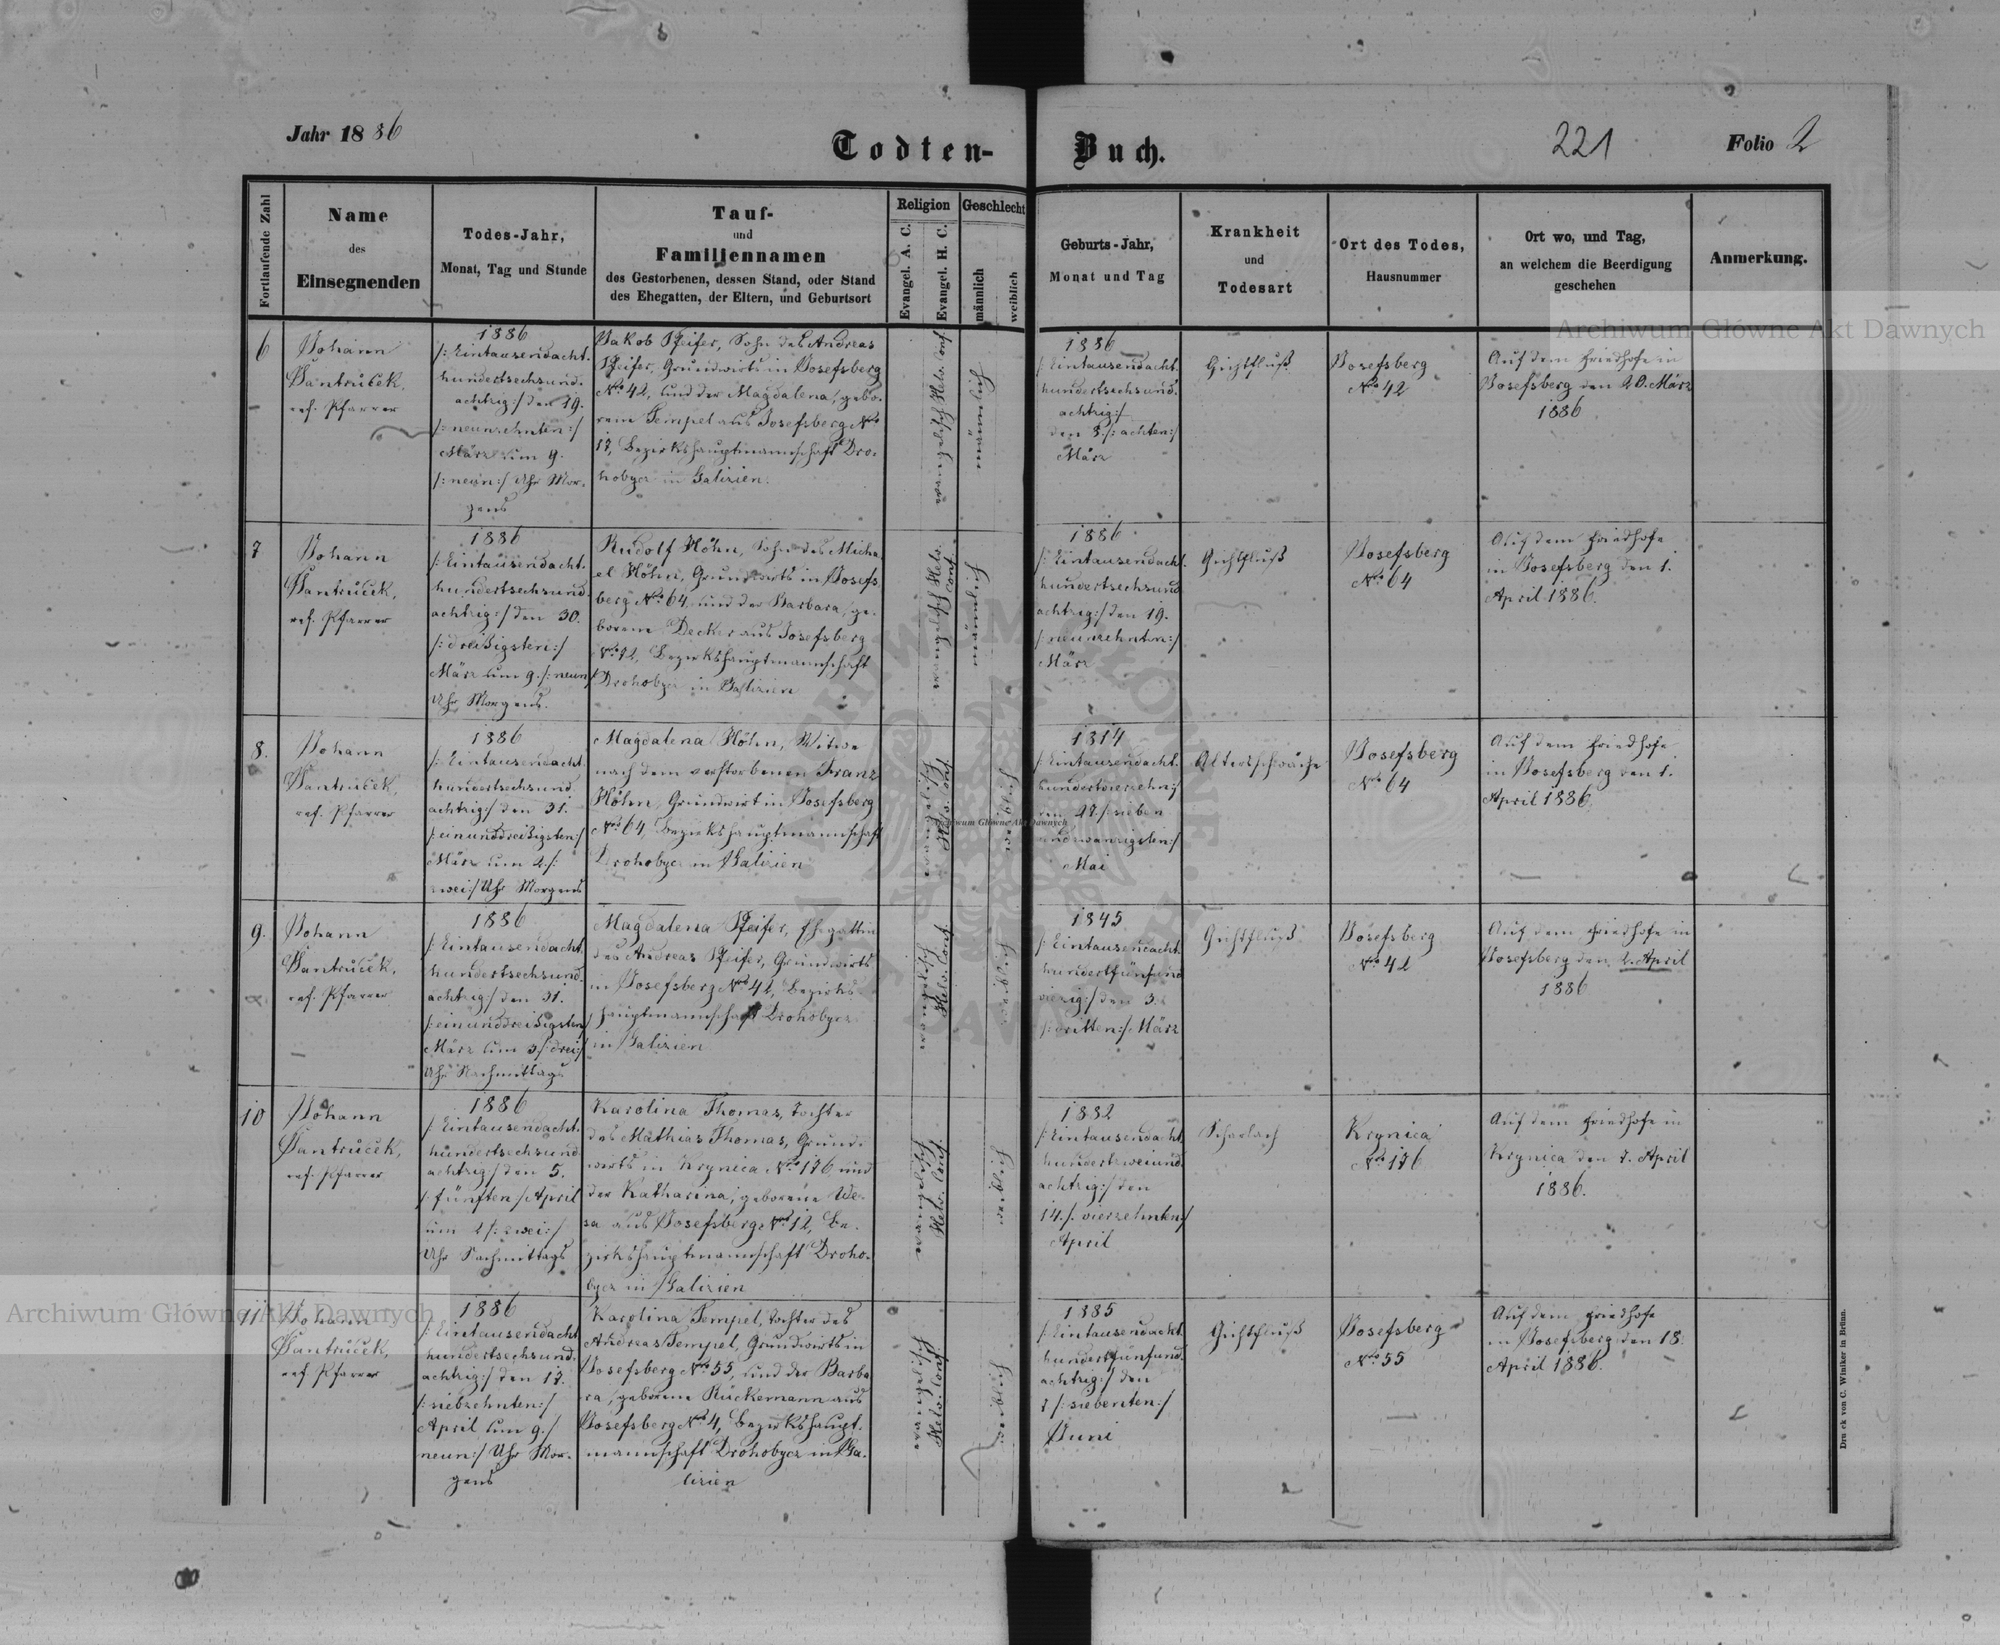 Jahr 1886
Todten-Buch.
221
Folio 2
Fortlaufende Zahl
Name
des
Einsegnenden
Todes-Jahr,
Monat, Tag und Stunde
Tauf-
und
Familiennamen
des Gestorbenen, dessen Stand, oder Stand
des Ehegatten, der Eltern, und Geburtsort
Religion
Evangel. A. C.
Evangel. H. C.
Geschlecht
männlich
weiblich
Geburts-Jahr,
Monat und Tag
Krankheit
und
Todesart
Ort des Todes,
Hausnummer
Ort wo, und Tag,
an welchem die Beerdigung
geschehen
Anmerkung.
6
Johann
Jantruček,
ref. Pfarrer
1886
/:Eintausendacht-
hundertsechsund-
achtzig:/ den 19.
/:neunzehnten:/
März um 9.
/:neun:/ Uhr Mor-
gens
Jakob Pfeifer, Sohn des Andreas
Pfeifer, Grundwirts in Josefsberg
No 42, und der Magdalena, gebo-
rene Tempel aus Josefsberg No
17, Bezirkshauptmannschaft Dro-
hobycz in Galizien.
evangelisch Helv. Conf.
männlich
1886
/:Eintausendacht-
hundertsechsund-
achtzig:/
den 8. /:achten:/
März
Gichtfluß
Josefsberg
No 42
Auf dem Friedhofe in
Josefsberg den 20. März
1886
7
Johann
Jantruček,
ref. Pfarrer
1886
/:Eintausendacht-
hundertsechsund-
achtzig:/ den 30.
/:dreißigsten:/
März um 9. /:neun:/
Uhr Morgens.
Rudolf Höhn, Sohn des Micha-
el Höhn, Grundwirts in Josefs-
berg No 64, und der Barbara, ge-
borene Decker aus Josefsberg
No 92, Bezirkshauptmannschaft
Drohobycz in Galizien
evangelisch Helv.
Conf.
männlich
1886
/:Eintausendacht-
hundertsechsund-
achtzig:/ den 19.
/:neunzehnten:/
März
Gichtfluß
Josefsberg
No 64
Auf dem Friedhofe
in Josefsberg den 1.
April 1886.
8.
Johann
Jantruček,
ref. Pfarrer
1886
/:Eintausendacht-
hundertsechsund-
achtzig:/ den 31.
/:einunddreißigsten:/
März um 2. /:
zwei:/ Uhr Morgens
Magdalena Höhn, Witwe
nach dem verstorbenen Franz
Höhn, Grundwirt in Josefsberg
No 64, Bezirkshauptmannschaft
Drohobycz in Galizien
evangelisch
Helv. Conf.
weiblich
1814
/:Eintausendacht-
hundertvierzehn:/
den 27. /:sieben
undzwanzigsten:/
Mai
Altersschwäche
Josefsberg
No 64
Auf dem Friedhofe
in Josefsberg den 1.
April 1886.
9.
Johann
Jantruček,
ref. Pfarrer
1886
/:Eintausendacht-
hundertsechsund-
achtzig:/ den 31.
/:einunddreißigsten:/
März um 3 /:drei:/
Uhr Nachmittags
Magdalena Pfeifer, Ehegattin
des Andreas Pfeifer, Grundwirts
in Josefsberg No 42, Bezirks-
hauptmannschaft Drohobycz
in Galizien
evangelisch
Helv. Conf.
weiblich
1845
/:Eintausendacht-
hundertfünfund-
vierzig:/ den 3.
/:dritten:/ März
Gichtfluß
Josefsberg
No 42
Auf dem Friedhofe in
Josefsberg den 2. April
1886
10
Johann
Jantruček,
ref. Pfarrer
1886
/:Eintausendacht-
hundertsechsund-
achtzig:/ den 5.
/:fünften:/ April
um 2 /:zwei:/
Uhr Nachmittags
Karolina Thomas, Tochter
des Mathias Thomas, Grund-
wirts in Krynica No 176 und
der Katharina, geborene We-
sa aus Josefsberg No 12, Be-
zirkshauptmannschaft Droho-
bycz in Galizien
evangelisch
Helv. Conf.
weiblich
1882
/:Eintausendacht-
hundertzweiund-
achtzig:/ den
14. /:vierzehnten:/
April
Scharlach
Krynica
No 176
Auf dem Friedhofe in
Krynica den 7. April
1886.
11
Johann
Jantruček,
ref. Pfarrer
1886
/:Eintausendacht-
hundertsechsund-
achtzig:/ den 17.
/:siebzehnten:/
April um 9. /:
neun:/ Uhr Mor-
gens
Karolina Tempel, Tochter des
Andreas Tempel, Grundwirts in
Josefsberg No 55, und der Barba-
ra, geborene Rückemann aus
Josefsberg No 4, Bezirkshaupt-
mannschaft Drohobycz in Ga-
lizien
evangelisch
Helv. Conf.
weiblich
1885
/:Eintausendacht-
hundertfünfund-
achtzig:/ den
7 /:siebenten:/
Juni
Gichtfluß
Josefsberg
No 55
Auf dem Friedhofe
in Josefsberg den 18.
April 1886.
Druck von C. Winiker in Brünn.
Archiwum Główne Akt Dawnych
Archiwum Główne Akt Dawnych
Archiwum Główne Akt Dawnych